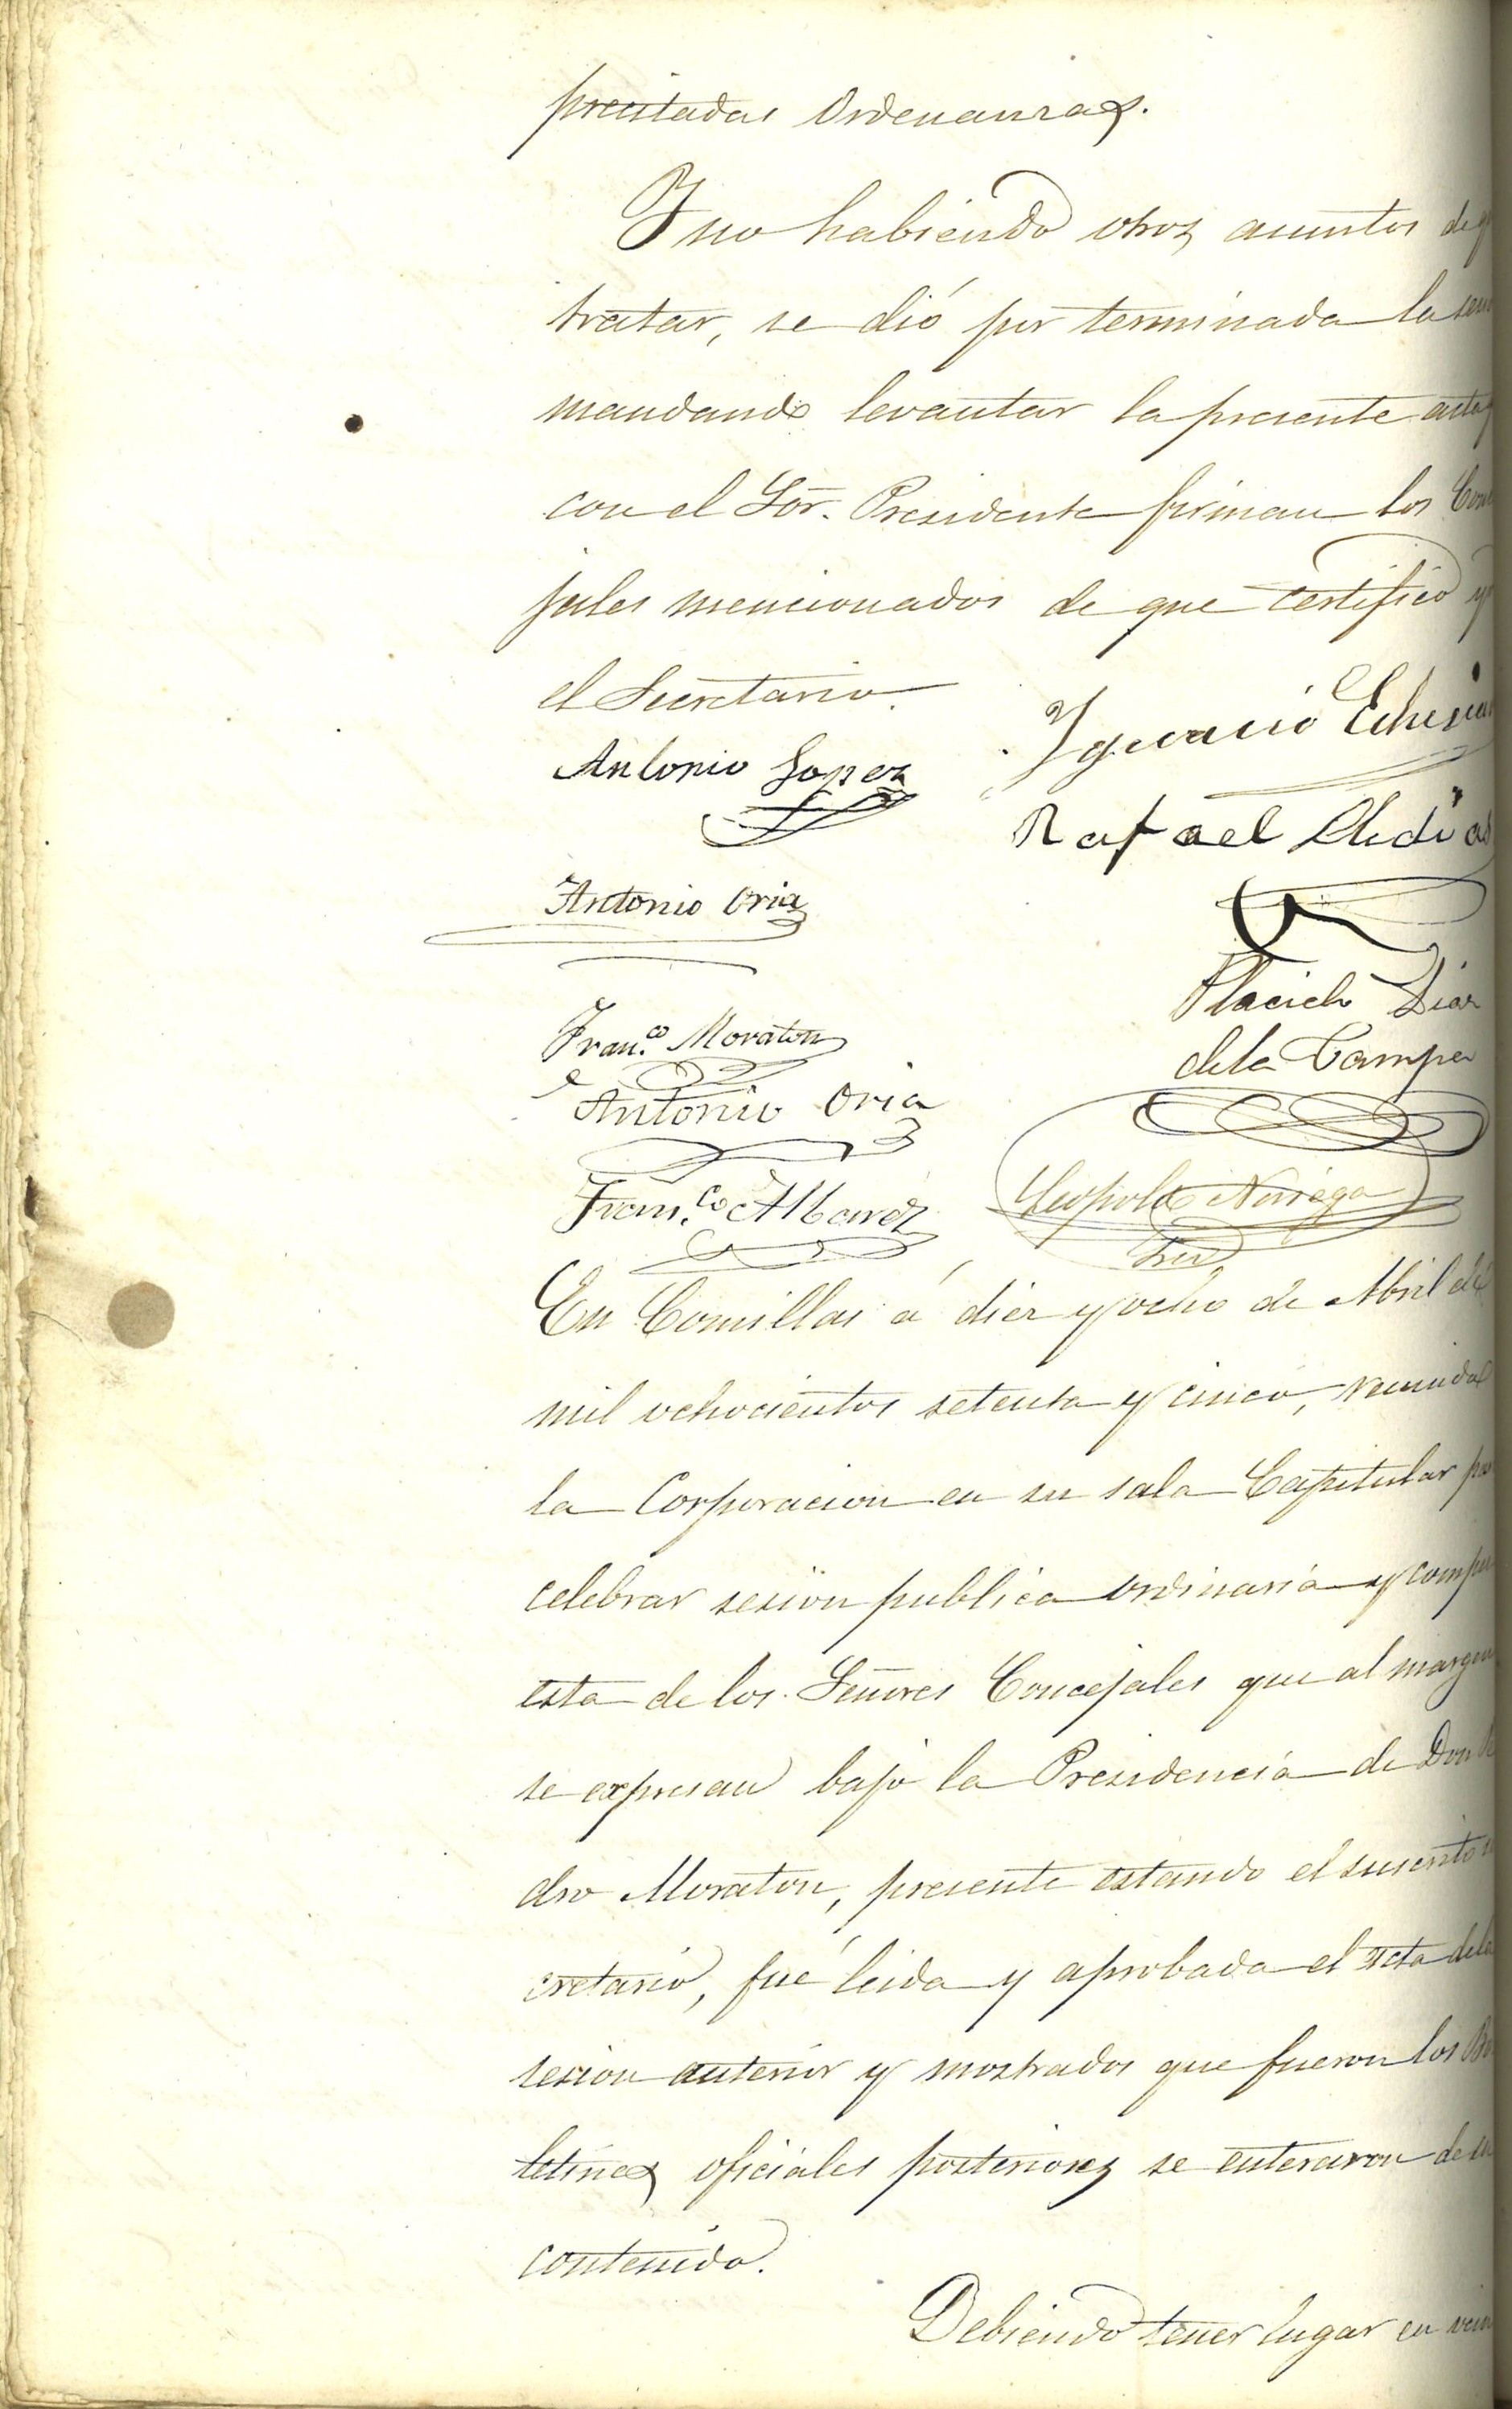 precitadas Ordenanzas.
Y no habiendo otros asuntos de q
tratar, se dió por terminada la
mandando levantar la presente acta
con el Sor. Presidente firman los Con
jales mencionados de que certifico y
el Secretario.
Antonio Lopez
Ygnacio
Rafael
Antonio Oria
Placido Diaz
de la Campa
Fran.co Moraton
Antonio Oria
Fran.co Albarez
Leopoldo Noriega
Srio
En Comillas á diez y ocho de Abril de
mil ochocientos setenta y cinco, reunida
la Corporacion en su sala Capitular
celebrar sesion publica ordinaria y compu
esta de los Señores Concejales que al margen
se expresan bajo la Presidencia de Don
dro Moraton, presente estando el suscrito
cretario, fué leida y aprobada el acta de la
sesion anterior y mostrados que fueron los Bo
letines oficiales posteriores se enteraron de su
contenido.
Debiendo tener lugar en